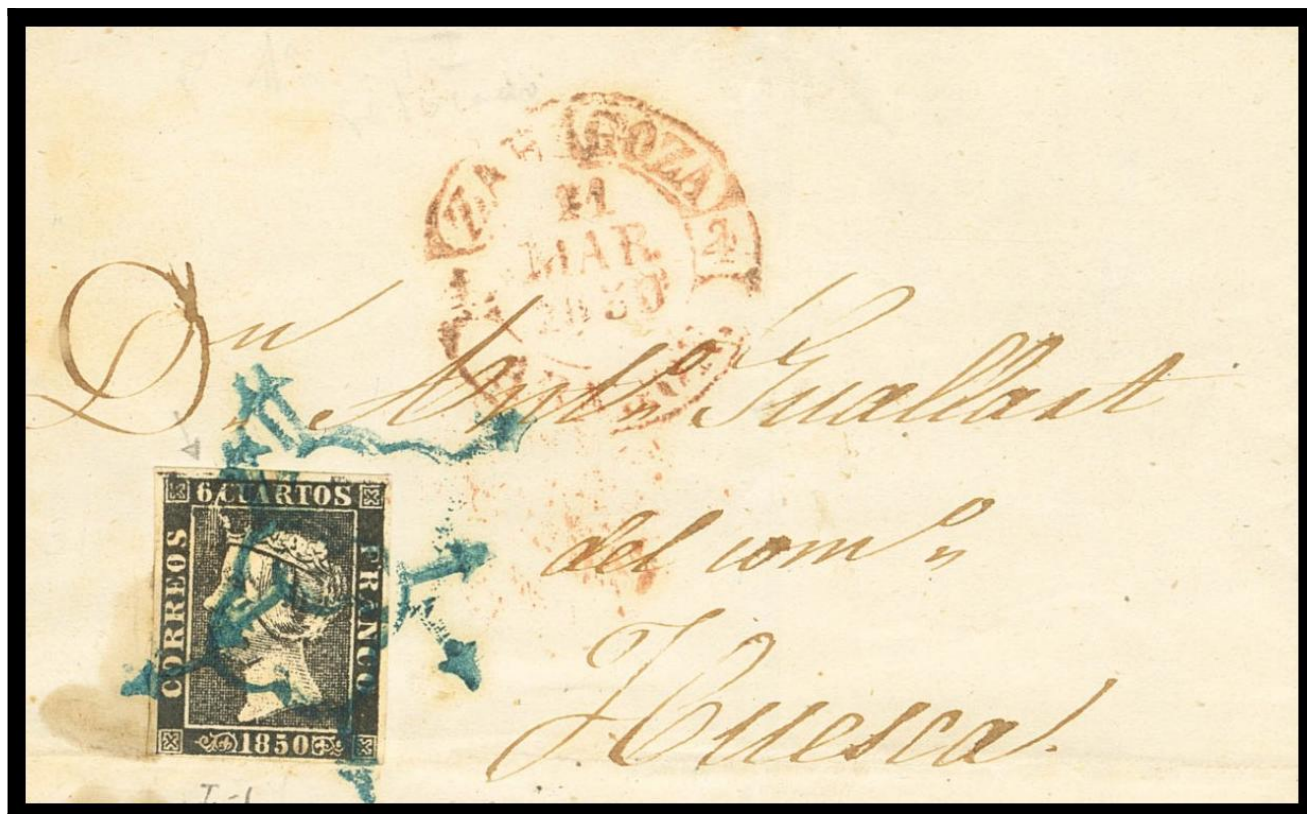 ZARAGOZA
MAR
1850
Dn Antº Guallart
del comº
Huesca.
6 CUARTOS
CORREOS
FRANCO
1850